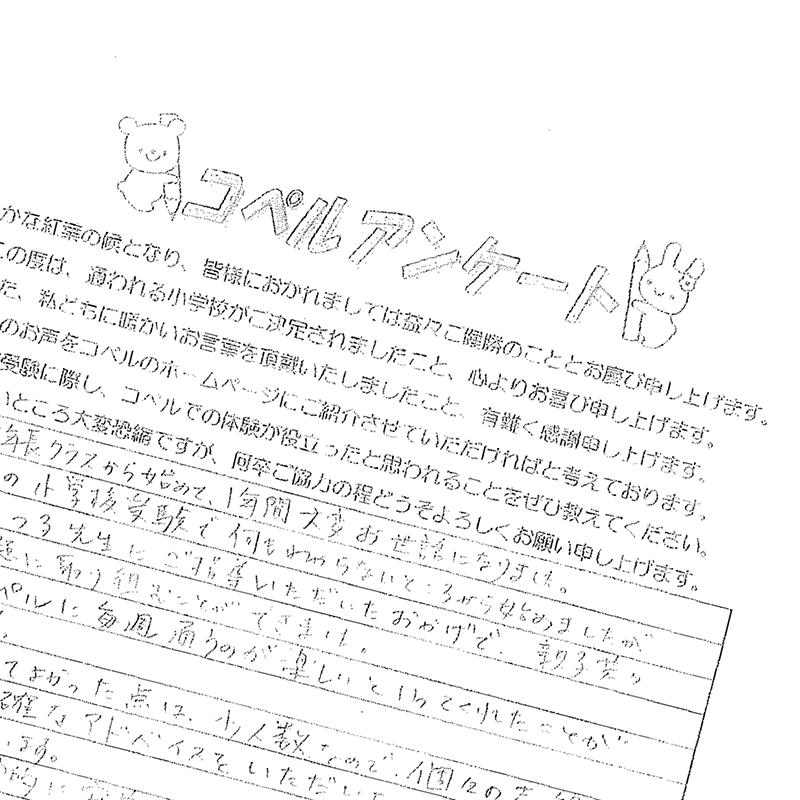 コペルアンケート
かな紅葉の候となり、皆様におかれましては益々ご隆勝のこととお慶び申し上げます。
この度は、通われる小学校がご決定されましたこと、心よりお喜び申し上げます。
た、私どもに暖かいお言葉を頂戴いたしましたこと、有難く感謝申し上げます。
のお声をコペルのホームページにご紹介させていただければと考えております。
受験に際し、コペルでの体験が役立ったと思われることをぜひ教えてください。
いところ大変恐縮ですが、何卒ご協力の程どうぞよろしくお願い申し上げます。
年長クラスから始めて、1年間大変お世話になりました。
の小学校受験で何もわからないところから始めましたが
つ子先生にご指導いただいたおかげで、親子共々
題に取り組むことができました。
ペルに毎週通うのが楽しいと言ってくれたことが
てよかった点は、少人数なので、個々の
確なアドバイスをいただいた
ます。
的に